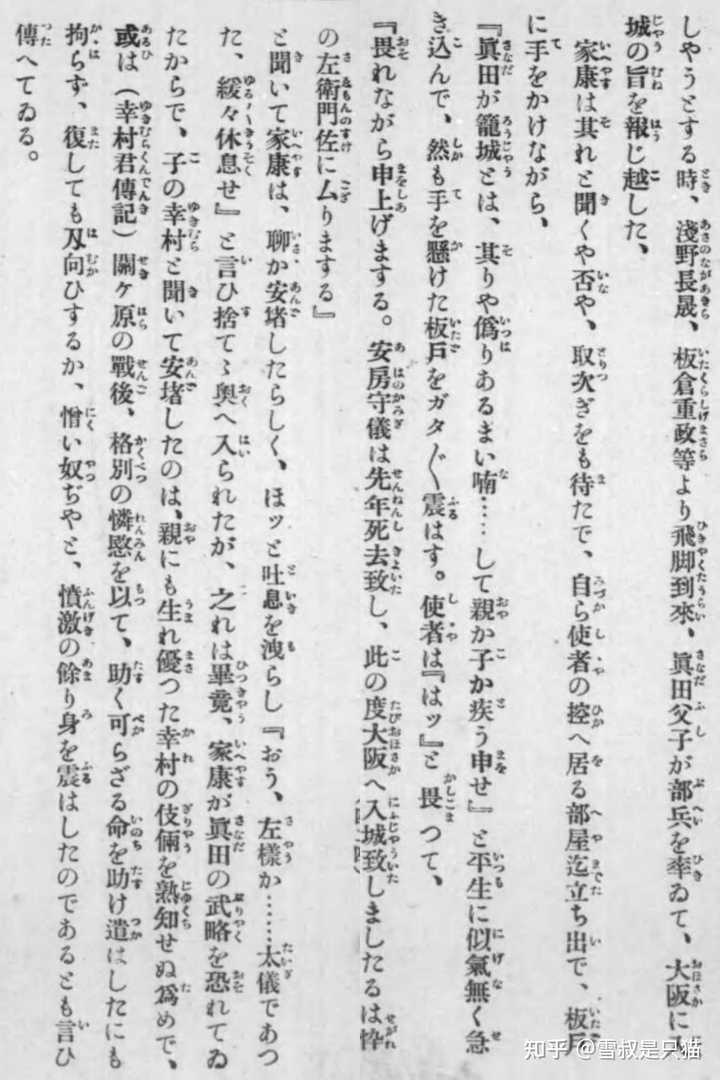 しやうとする時、淺野長晟、板倉重政等より飛脚到來、眞田父子が部兵を率ゐて、大阪に入
城の旨を報じ越した、
家康は其れと聞くや否や、取次ぎをも待たで、自ら使者の控へ居る部屋迄立ち出で、板戶
に手をかけながら、
『眞田が籠城とは、其りや僞りあるまい喃……して親か子か疾う申せ』と平生に似氣無く急
き込んで、然も手を懸けた板戶をガタ〳〵震はす。使者は『はッ』と畏つて、
『畏れながら申上げまする。安房守儀は先年死去致し、此の度大阪へ入城致しましたるは悴
の左衞門佐に厶りまする』
と聞いて家康は、聊か安堵したらしく、ほッと吐息を洩らし『おう、左樣か……太儀であつ
た、緩々休息せ』と言ひ捨てゝ奧へ入られたが、之れは畢竟、家康が眞田の武略を恐れてゐ
たからで、子の幸村と聞いて安堵したのは、親にも生れ優つた幸村の伎倆を熟知せぬ爲めで、
或は（幸村君傳記）關ヶ原の戰後、格別の憐愍を以て、助く可らざる命を助け遣はしたにも
拘らず、復しても刄向ひするか、憎い奴ぢやと、憤激の餘り身を震はしたのであるとも言ひ
傳へてゐる。
知乎 @雪叔是只猫